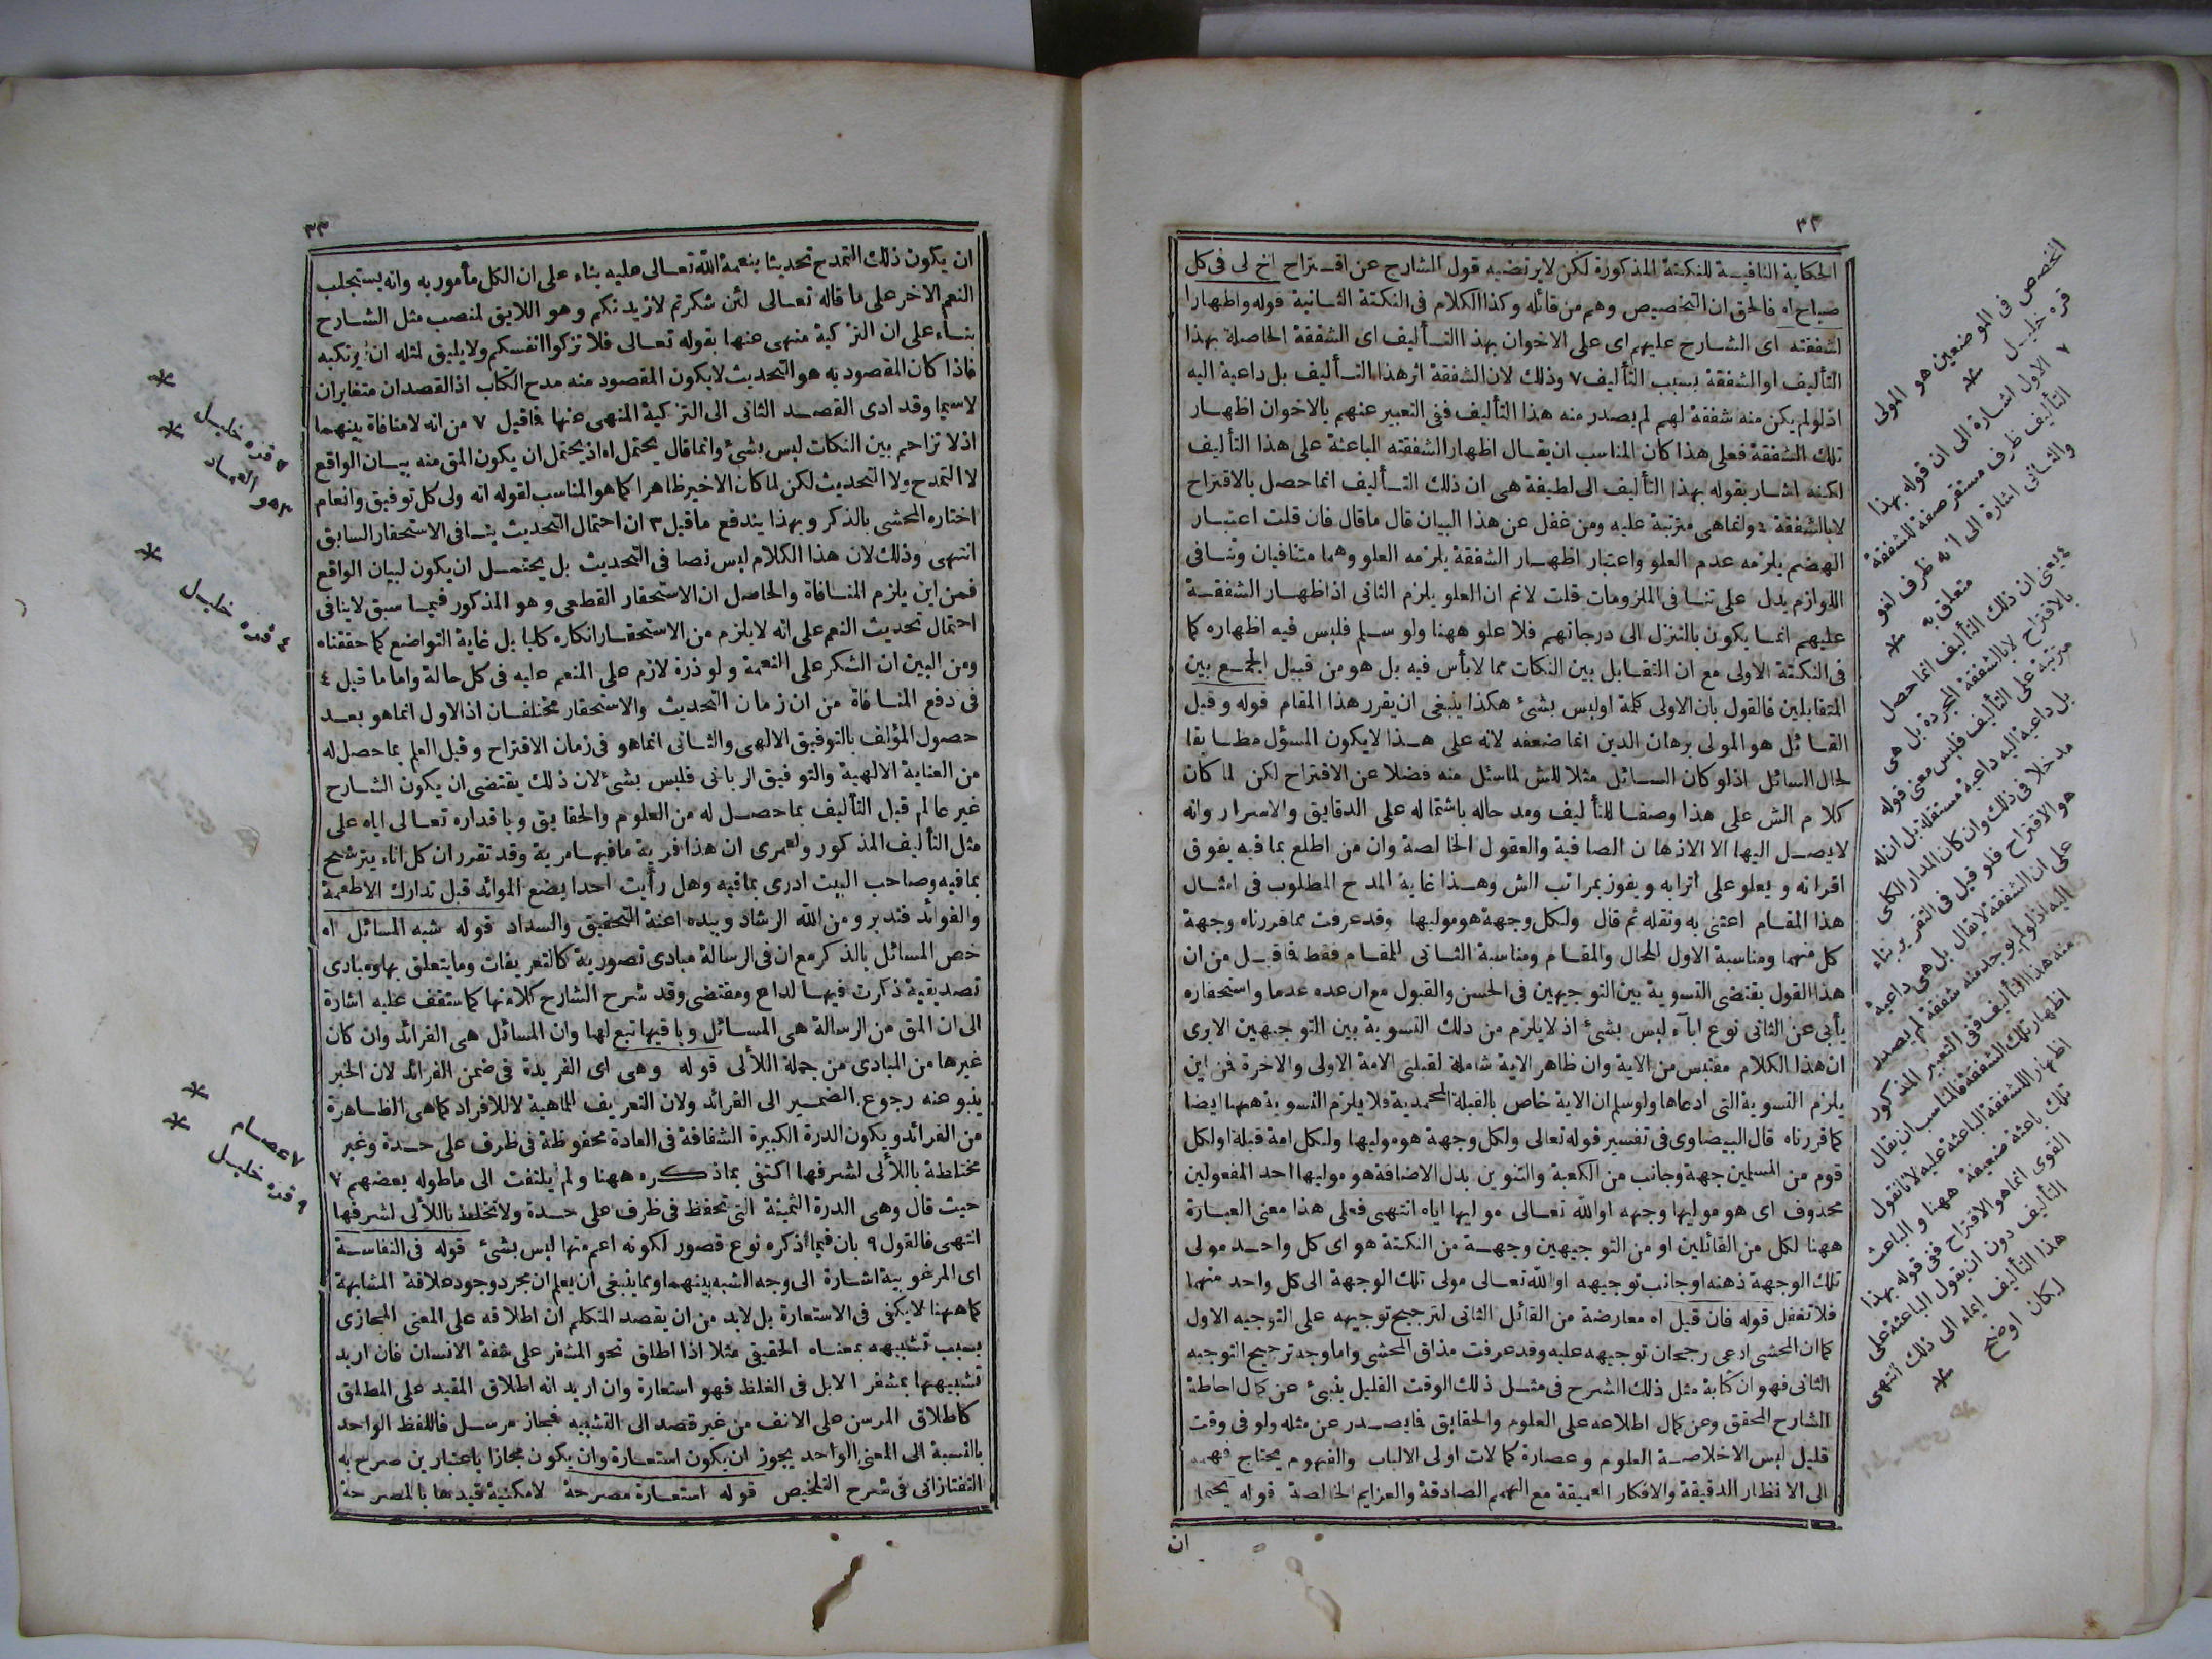 ٣٢
الحكاية النافية للنكتة المذكورة لكن لايرتضيه قول الشارح عن اقتراح اخ لى فى كل
صياح اه فالحق ان التخصيص وهم من قائله وكذا الكلام فى النكتة الثانية قوله واظهارا
لشفقته اى الشارح عليهم اى على الاخوان بهذا التأليف اى الشفقة الحاصلة بهذا
التأليف او الشفقة بسبب التأليف ٧ وذلك لان الشفقة اثر هذا التأليف بل داعية اليه
اذ لو لم يكن منه شفقة لهم لم يصدر منه هذا التأليف ففى التعبير عنهم بالاخوان اظهار
تلك الشفقة فعلى هذا كان المناسب ان يقال اظهارا لشفقته الباعثة على هذا التأليف
لكنه اشار بقوله بهذا التأليف الى لطيفة هى ان ذلك التأليف انما حصل بالاقتراح
لابالشفقة ٤ وانماهى مترتبة عليه ومن غفل عن هذا البيان قال ماقال فان قلت اعتبار
الهضم يلزمه عدم العلو واعتبار اظهار الشفقة يلزمه العلو وهما متنافيان وتنافى
اللوازم يدل على تنافى الملزومات قلت لانم ان العلو يلزم الثانى اذ اظهار الشفقة
عليهم انما يكون بالتنزل الى درجاتهم فلا علو ههنا ولو سلم فليس فيه اظهاره كما
فى النكتة الاولى مع ان التقابل بين النكات مما لابأس فيه بل هو من قبيل الجمع بين
المتقابلين فالقول بان الاولى كلمة او ليس بشئ هكذا ينبغى ان يقرر هذا المقام قوله وقيل
القائل هو المولى برهان الدين انما ضعفه لانه على هذا لايكون المسؤل مطابقا
لحال السائل اذ لو كان السائل مثلا للش لما سئل منه فضلا عن الاقتراح لكن لما كان
كلام الش على هذا وصفا للتأليف ومدحاله باشتماله على الدقايق والاسرار وانه
لايصل اليها الا الاذهان الصافية والعقول الخالصة وان من اطلع بما فيه يفوق
اقرانه ويعلو على اترابه ويفوز بمراتب الش وهذا غاية المدح المطلوب فى امثال
هذا المقام اعتنى به ونقله ثم قال ولكل وجهة هوموليها وقد عرفت مما قررناه وجهة
كل منهما ومناسبة الاول للحال والمقام ومناسبة الثانى للمقام فقط فاقيل من ان
هذا القول يقتضى التسوية بين التوجيهين فى الحسن والقبول مع ان عده عدما واستحقاره
يأبى عن الثانى نوع اباء ليس بشئ اذ لايلزم من ذلك التسوية بين التوجيهين الايرى
ان هذا الكلام مقتبس من الاية وان ظاهر الاية شاملة لقبلتى الامة الاولى والاخرة فمن اين
يلزم التسوية التى ادعاها ولو سلم ان الاية خاص بالقبلة المحمدية فلايلزم التسوية ههنا ايضا
كما قررناه قال البيضاوى فى تفسير قوله تعالى ولكل وجهة هوموليها ولكل امة قبلة او لكل
قوم من المسلمين جهة وجانب من الكعبة والتنوين بدل الاضافة هو موليها احد المفعولين
محذوف اى هو موليها وجهه او الله تعالى موليها اياه انتهى فعلى هذا معنى العبارة
ههنا لكل من القائلين او من التوجيهين وجهة من النكتة هو اى كل واحد مولى
تلك الوجهة ذهنه او جانب توجيهه او الله تعالى مولى تلك الوجهة الى كل واحد منهما
فلا تغفل قوله فان قيل اه معارضة من القائل الثانى لترجيح توجيهه على التوجيه الاول
كما ان المحشى ادعى رجحان توجيهه عليه وقد عرفت مذاق المحشى واما وجه ترجيح التوجيه
الثانى فهو ان كتابة مثل ذلك الشرح فى مثل ذلك الوقت القليل ينبئ عن كمال احاطة
الشارح المحقق وعن كمال اطلاعه على العلوم والحقايق فايصدر عن مثله ولو فى وقت
قليل ليس الاخلاصة العلوم وعصارة كمالات اولى الالباب والفهوم يحتاج فهمه
الى الانظار الدقيقة والافكار العميقة مع الهمم الصادقة والعزايم الخالصة قوله يحتمل
ان
المخصص فى الموضعين هو المولى
قره خليل
٧ الاول اشارة الى ان قوله بهذا
التأليف ظرف مستقر صفة للشفقة
والثانى اشارة الى انه ظرف لغو
متعلق به
٤ يعنى ان ذلك التأليف انما حصل
بالاقتراح لابالشفقة المجردة بل هى
مترتبة على التأليف فليس معنى قوله
بل داعية اليه داعية مستقلة بل ان له
مدخلا فى ذلك وان كان المدار الكلى
هو الاقتراح فلو قيل فى التقرير بناء
على ان الشفقة لايقال بل هى داعية
اليه اذ لو لم يوجد منه شفقة لم يصدر
منه هذا التأليف ففى التعبير المذكور
اظهار تلك الشفقة فالمناسب ان يقال
اظهارا للشفقة الباعثة عليه لانا نقول
تلك باعثة ضعيفة ههنا والباعث
القوى انما هو الاقتراح ففى قوله بهذا
التأليف دون ان يقول الباعثة على
هذا التأليف ايماء الى ذلك انتهى
لكان اوضح
٣٣
ان يكون ذلك التمدح تحديثا بنعمة الله تعالى عليه بناء على ان الكل مأمور به وانه يستجلب
النعم الاخر على ما قاله تعالى لئن شكرتم لازيدنكم وهو اللايق لمنصب مثل الشارح
بناء على ان التزكية منهى عنها بقوله تعالى فلا تزكوا انفسكم ولايليق لمثله ان يرتكبه
فاذا كان المقصود به هو التحديث لايكون المقصود منه مدح الكتاب اذ القصدان متغايران
لاسيما وقد ادى القصد الثانى الى التزكية المنهى عنها فاقيل ٧ من انه لامنافاة بينهما
اذ لا تزاحم بين النكات ليس بشئ وانما قال يحتمل اه اذ يحتمل ان يكون المق منه بيان الواقع
لا التمدح ولا التحديث لكن لما كان الاخير ظاهرا كما هو المناسب لقوله انه ولى كل توفيق وانعام
اختاره المحشى بالذكر وبهذا يندفع ماقيل ٣ ان احتمال التحديث ينافى الاستحقار السابق
انتهى وذلك لان هذا الكلام ليس نصا فى التحديث بل يحتمل ان يكون لبيان الواقع
فمن اين يلزم المنافاة والحاصل ان الاستحقار القطعى وهو المذكور فيما سبق لاينافى
احتمال تحديث النعم على انه لايلزم من الاستحقار انكاره كليا بل غاية التواضع كما حققناه
ومن البين ان الشكر على النعمة ولو ذرة لازم على المنعم عليه فى كل حالة واما ما قيل ٤
فى دفع المنافاة من ان زمان التحديث والاستحقار مختلفان اذ الاول انما هو بعد
حصول المؤلف بالتوفيق الالهى والثانى انما هو فى زمان الاقتراح وقبل العلم بما حصل له
من العناية الالهية والتوفيق الربانى فليس بشئ لان ذلك يقتضى ان يكون الشارح
غير عالم قبل التأليف بما حصل له من العلوم والحقايق وباقداره تعالى اياه على
مثل التأليف المذكور ولعمرى ان هذا فرية مافيها مرية وقد تقرر ان كل اناء يترشح
بمافيه وصاحب البيت ادرى بمافيه وهل رأيت احدا يضع الموائد قبل تدارك الاطعمة
والفوائد فتدبر ومن الله الرشاد وبيده اعنة التحقيق والسداد قوله شبه المسائل اه
خص المسائل بالذكر مع ان فى الرسالة مبادى تصورية كالتعريفات ومايتعلق بها ومبادى
تصديقية ذكرت فيها لداع ومقتضى وقد شرح الشارح كلا منها كما ستقف عليه اشارة
الى ان المق من الرسالة هى المسائل وباقيها تبع لها وان المسائل هى الفرائد وان كان
غيرها من المبادى من جملة اللألى قوله وهى اى الفريدة فى ضمن الفرائد لان الخبر
ينبو عنه رجوع الضمير الى الفرائد ولان التعريف للماهية لاللافراد كما هى الظاهرة
من الفرائد ويكون الدرة الكبيرة الشفافة فى العادة محفوظة فى ظرف على حدة وغير
مختلطة باللألى لشرفها اكتفى بماذكره ههنا ولم يلتفت الى ماطوله بعضهم ٧
حيث قال وهى الدرة الثمينة التى تحفظ فى ظرف على حدة ولاتختلط باللألى لشرفها
انتهى فالقول ٩ بان فيما اذكره نوع قصور لكونه اعم منها ليس بشئ قوله فى النفاسة
اى المرغوبية اشارة الى وجه الشبه بينهما ومما ينبغى ان يعلم ان مجرد وجود علاقة المشابهة
كما ههنا لايكفى فى الاستعارة بل لابد من ان يقصد المتكلم ان اطلاقه على المعنى المجازى
بسبب تشبيهه بمعناه الحقيقى مثلا اذا اطلق نحو المشفر على شفة الانسان فان اريد
تشبيهها بمشفر الابل فى الغلظ فهو استعارة وان اريد انه اطلاق المقيد على المطلق
كاطلاق المرسن على الانف من غير قصد الى التشبيه فمجاز مرسل فاللفظ الواحد
بالنسبة الى المعنى الواحد يجوز ان يكون استعارة وان يكون مجازا باعتبارين صرح به
التفتازانى فى شرح التلخيص قوله استعارة مصرحة لامكنية قيدها بالمصرحة
قره خليل
٣ هو العماد
٤ قره خليل
٧ عصام
٩ قره خليل